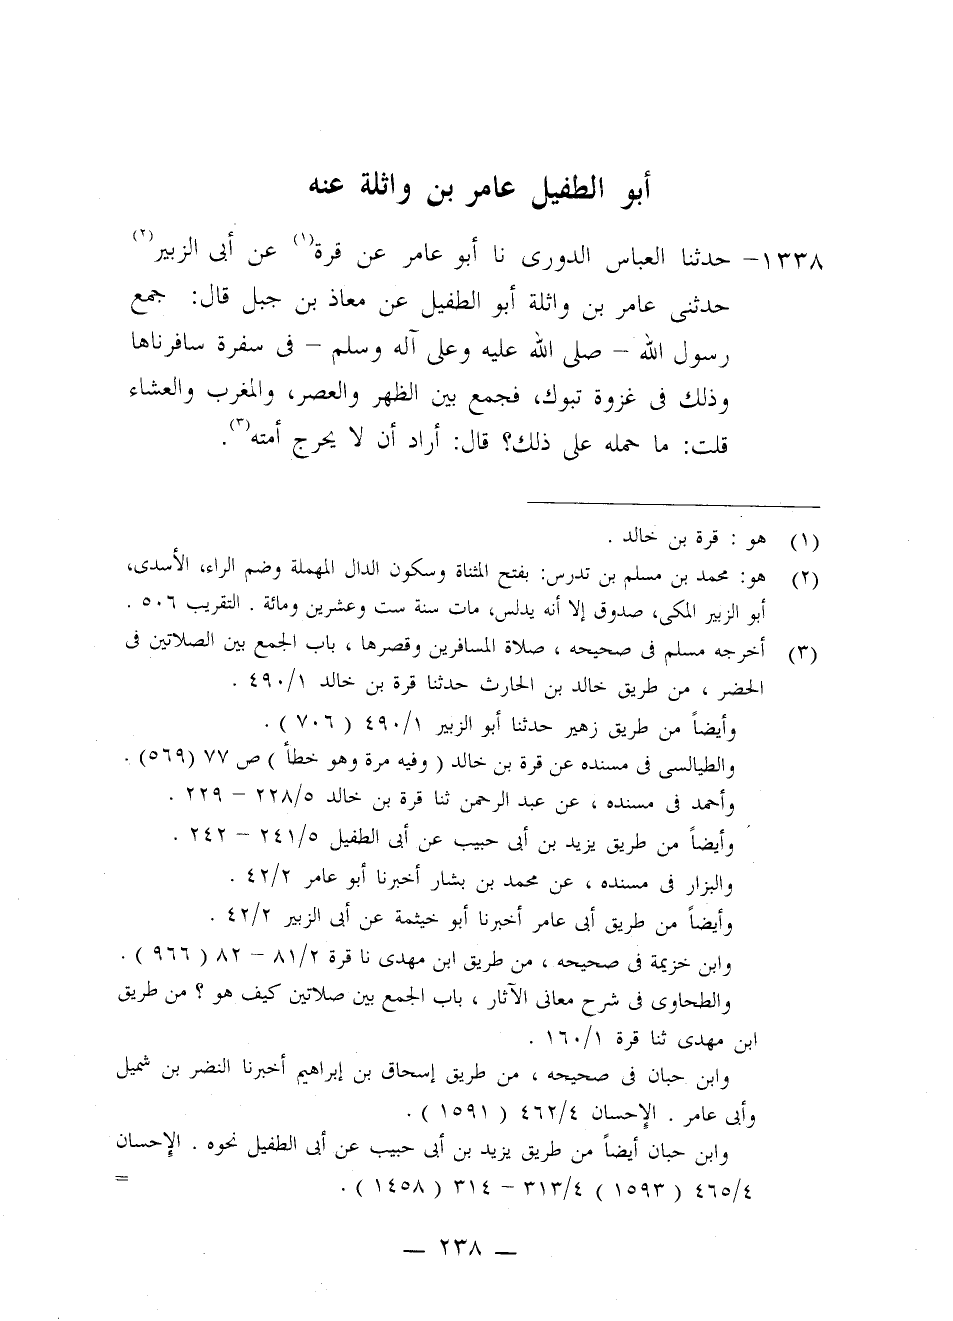 أبو الطفيل عامر بن واثلة عنه
١٣٣٨- حدثنا العباس الدورى نا أبو عامر عن قرة(١) عن أبى الزبير(٢)
حدثنى عامر بن واثلة أبو الطفيل عن معاذ بن جبل قال: جمع
رسول الله - صلى الله عليه وعلى آله وسلم - فى سفرة سافرناها
وذلك فى غزوة تبوك، فجمع بين الظهر والعصر، والمغرب والعشاء
قلت: ما حمله على ذلك؟ قال: أراد أن لا يحرج أمته(٣).
(١) هو : قرة بن خالد .
(٢) هو: محمد بن مسلم بن تدرس: بفتح المثناة وسكون الدال المهملة وضم الراء، الأسدى،
أبو الزبير المكى، صدوق إلا أنه يدلس، مات سنة ست وعشرين ومائة . التقريب ٥٠٦ .
(٣) أخرجه مسلم فى صحيحه ، صلاة المسافرين وقصرها ، باب الجمع بين الصلاتين فى
الحضر ، من طريق خالد بن الحارث حدثنا قرة بن خالد ٤٩٠/١ .
وأيضاً من طريق زهير حدثنا أبو الزبير ٤٩٠/١ ( ٧٠٦ ) .
والطيالسى فى مسنده عن قرة بن خالد ( وفيه مرة وهو خطأ ) ص ٧٧ (٥٦٩) .
وأحمد فى مسنده ، عن عبد الرحمن ثنا قرة بن خالد ٢٢٨/٥ - ٢٢٩ .
وأيضاً من طريق يزيد بن أبى حبيب عن أبى الطفيل ٢٤١/٥ - ٢٤٢ .
والبزار فى مسنده ، عن محمد بن بشار أخبرنا أبو عامر ٤٢/٢ .
وأيضاً من طريق أبى عامر أخبرنا أبو خيثمة عن أبى الزبير ٤٢/٢ .
وابن خزيمة فى صحيحه ، من طريق ابن مهدى نا قرة ٨١/٢ - ٨٢ ( ٩٦٦ ) .
والطحاوى فى شرح معانى الآثار ، باب الجمع بين صلاتين كيف هو ؟ من طريق
ابن مهدى ثنا قرة ١٦٠/١ .
وابن حبان فى صحيحه ، من طريق إسحاق بن إبراهيم أخبرنا النضر بن شميل
وأبى عامر . الإحسان ٤٦٢/٤ ( ١٥٩١ ) .
وابن حبان أيضاً من طريق يزيد بن أبى حبيب عن أبى الطفيل نحوه . الإحسان
٤٦٥/٤ ( ١٥٩٣ ) ٣١٣/٤ - ٣١٤ ( ١٤٥٨ ) .
=
— ٢٣٨ —